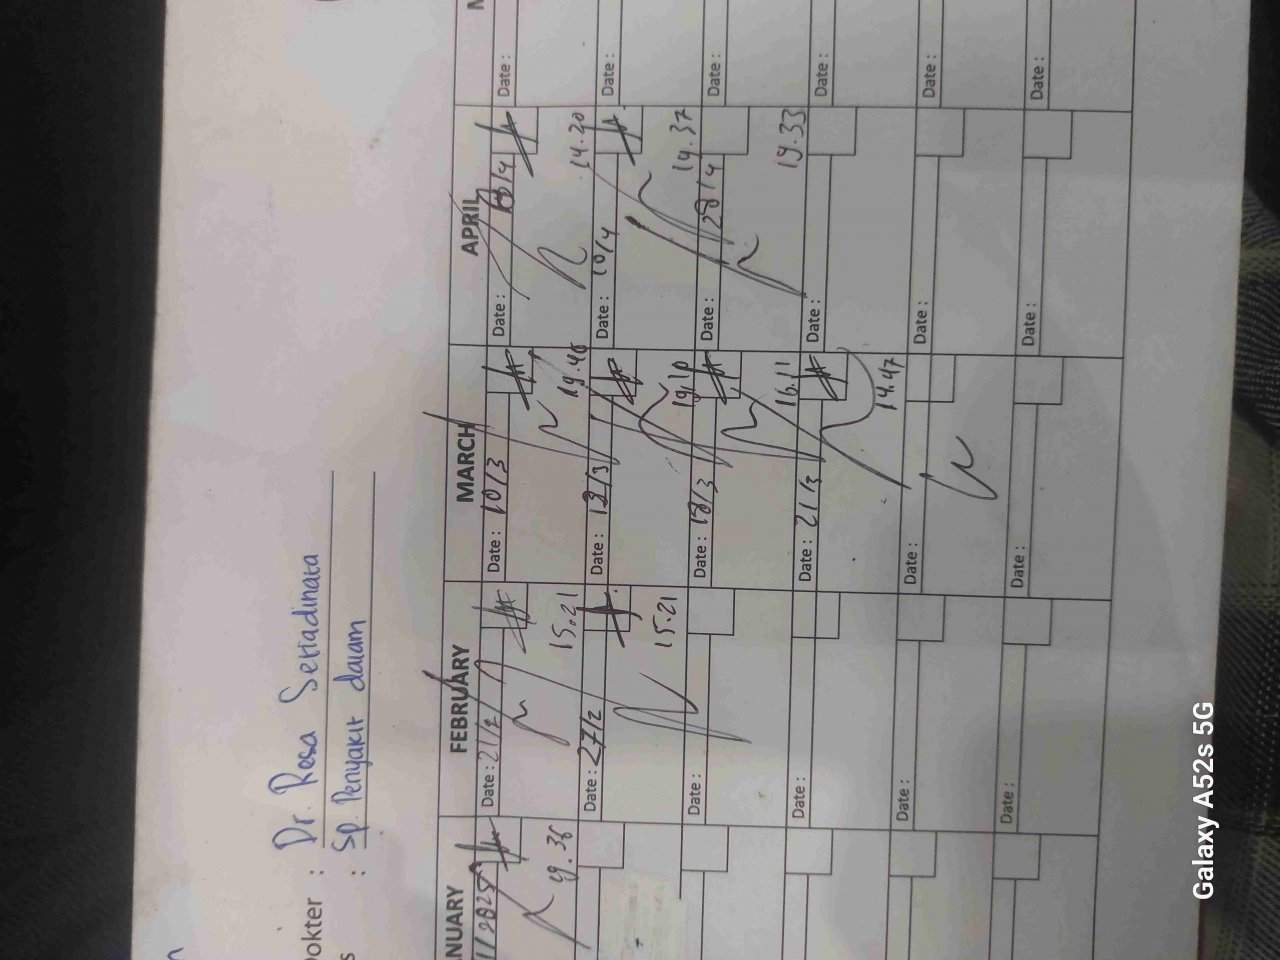 Dokter : Dr. Rosa Setiadinata
s : Sp. Penyakit dalam
NUARY FEBRUARY MARCH APRIL
1/2025 Date : 21/2 Date : 10/3 Date :
19.36 15.21 19.46 14.20
Date : 27/2 Date : 12/3 Date : 10/4 Date :
15.21 19.10 19.37
Date : Date : 18/3 Date : 28/4 Date :
16.11 19.33
Date : Date : 21/3 Date : Date :
14.47
Date : Date : Date : Date :
Date : Date : Date : Date :
Galaxy A52s 5G